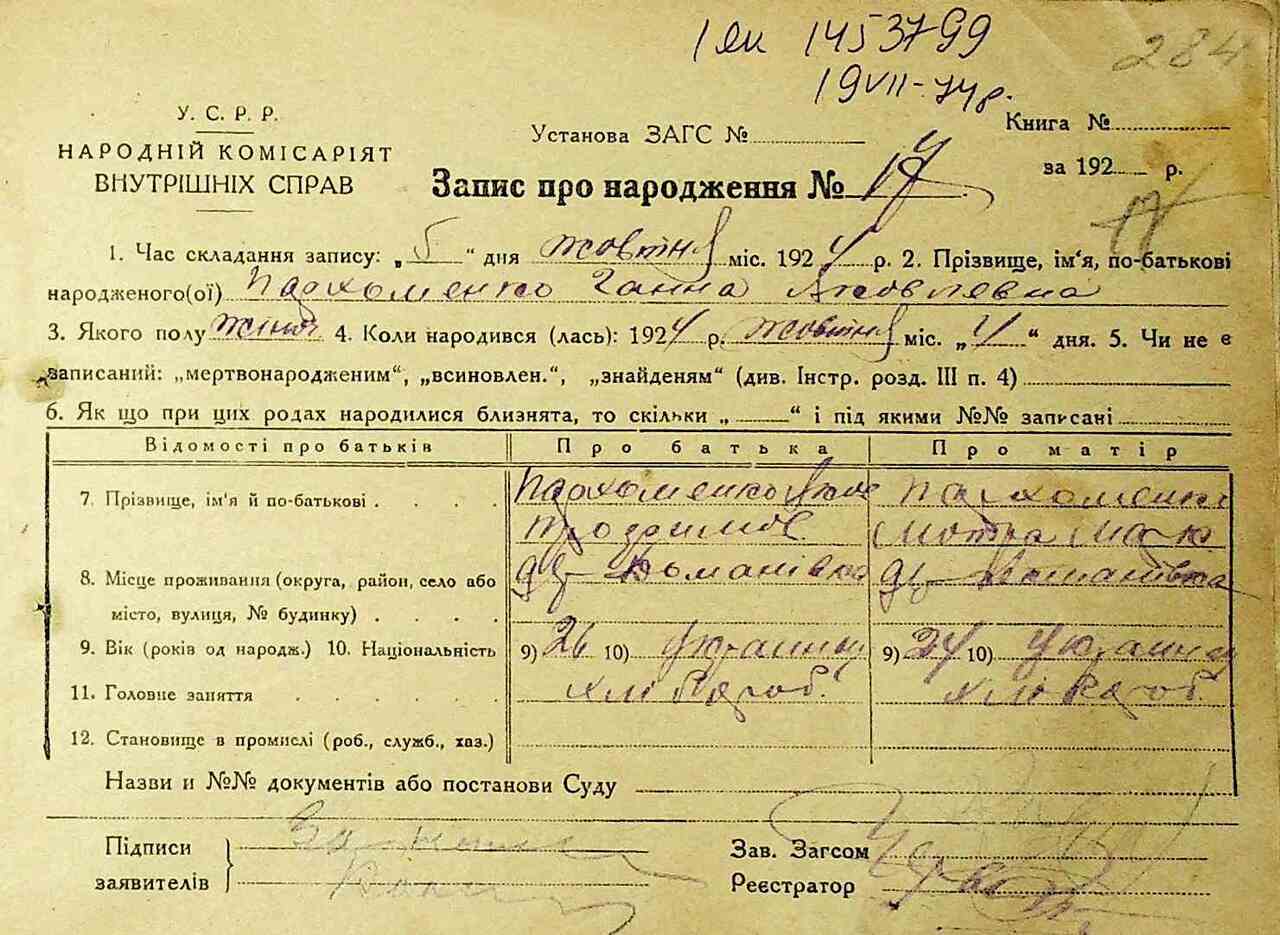 1453799
284
19 VII-74 р.
У. С. Р. Р.
НАРОДНІЙ КОМІСАРІЯТ
ВНУТРІШНІХ СПРАВ
Установа ЗАГС №
Книга №
за 192 р.
Запис про народження № 17
1. Час складання запису: „5“ дня жовтня міс. 1924 р. 2. Прізвище, ім'я, по-батькові
народженого(ої) Пархоменко Ганна Яковлевна
3. Якого полу жіноч 4. Коли народився (лась): 1924 р. жовтня міс. „4“ дня. 5. Чи не є
записаний: „мертвонародженим“, „всиновлен.“, „знайденям“ (див. Інстр. розд. III п. 4)
6. Як що при цих родах народилися близнята, то скільки „ “ і під якими №№ записані
Відомості про батьків Про батька Про матір
7. Прізвище, ім'я й по-батькові Пархоменко Яков Пархоменко
Трофимов Мотра
8. Місце проживання (округа, район, село або Доманівка Доманівка
місто, вулиця, № будинку)
9. Вік (років од народж.) 10. Національність 9) 26 10) Украинец 9) 24 10) Украинка
11. Головне заняття хлібороб. хлібороб.
12. Становище в промислі (роб., служб., хаз.)
Назви и №№ документів або постанови Суду
Підписи
заявителів
Зав. Загсом
Реєстратор